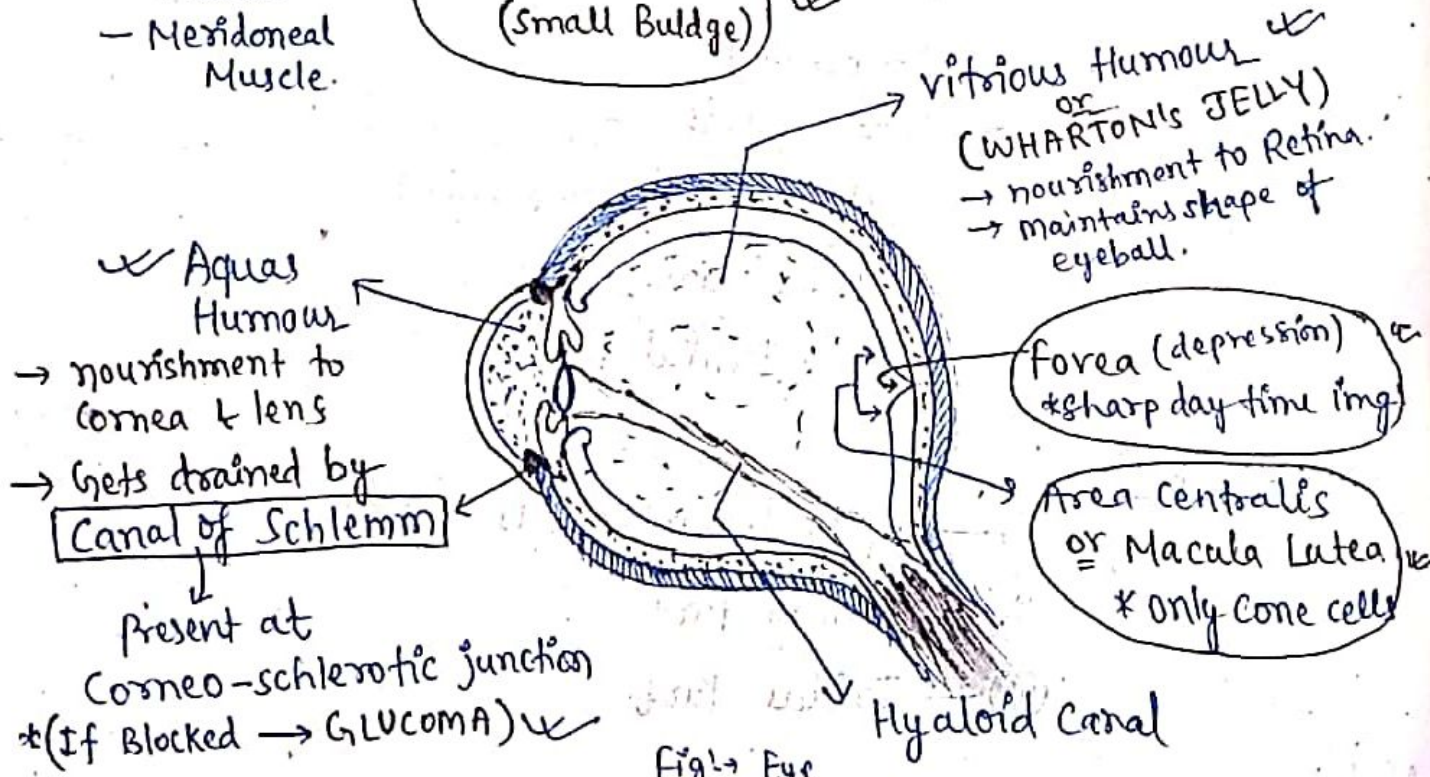 — Meridoneal
Muscle.
(Small Buldge)
vitrious Humour
or
(WHARTON'S JELLY)
→ nourishment to Retina.
→ maintains shape of
eyeball.
Aquas
Humour
→ nourishment to
Cornea & lens
→ Gets drained by
Canal of Schlemm
↓
Present at
Corneo-schlerotic junction
*(If Blocked → GLUCOMA)
Fovea (depression)
*sharp day time img
Area Centralis
or Macula Lutea
* only cone cells
Hyaloid Canal
Fig:→ Eye